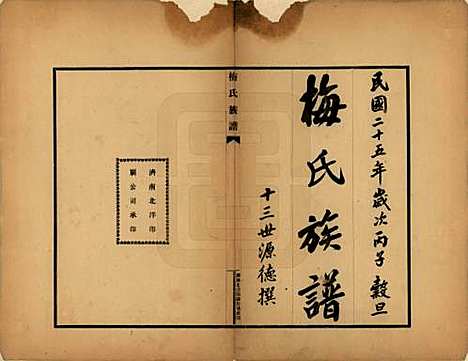 民國二十五年歲次丙子穀旦
梅氏族譜
十三世源德撰
梅氏族譜
濟南北洋印
刷公司承印